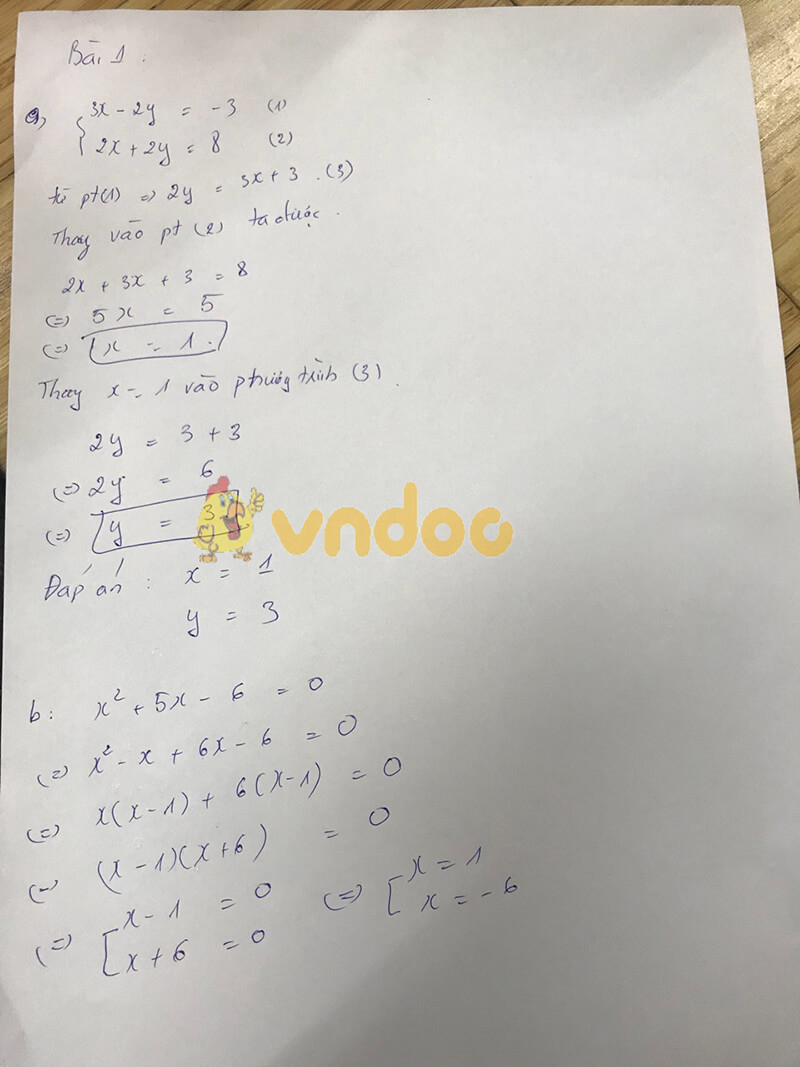 Bài 1:
a, { 3x - 2y = -3 (1)
2x + 2y = 8 (2)
từ pt(1) => 2y = 3x + 3 . (3)
Thay vào pt (2) ta được .
2x + 3x + 3 = 8
(=) 5x = 5
(=) x = 1 .
Thay x = 1 vào phương trình (3) .
2y = 3 + 3
(=) 2y = 6
(=) y = 3
vndoc
Đáp án : x = 1
y = 3
b: x² + 5x - 6 = 0
(=) x² - x + 6x - 6 = 0
(=) x(x-1) + 6(x-1) = 0
(=) (x-1)(x+6) = 0
(=) [ x - 1 = 0 (=) [ x = 1
x + 6 = 0 x = -6